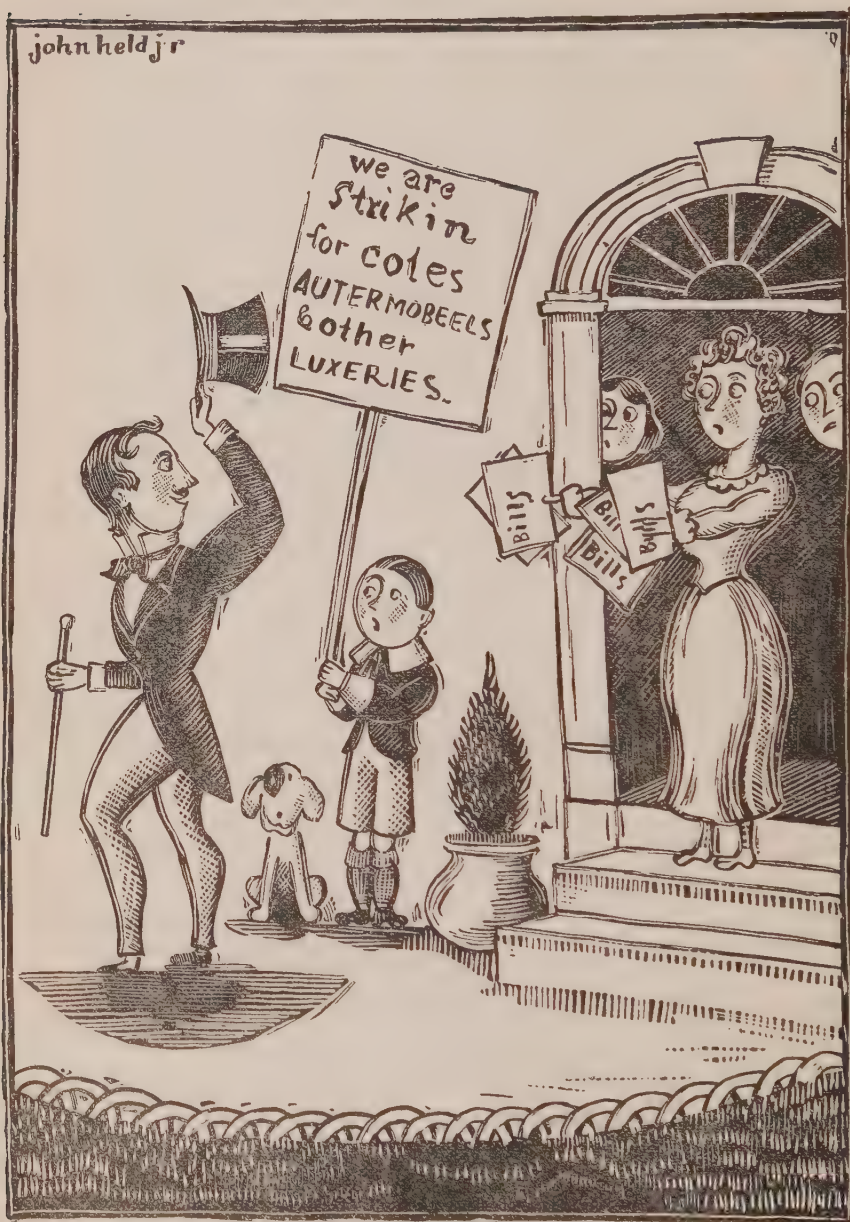 john held jr
we are
Strikin
for cotes
AUTERMOBEELS
& other
LUXERIES.
Bills
Bills
Bills
Bills